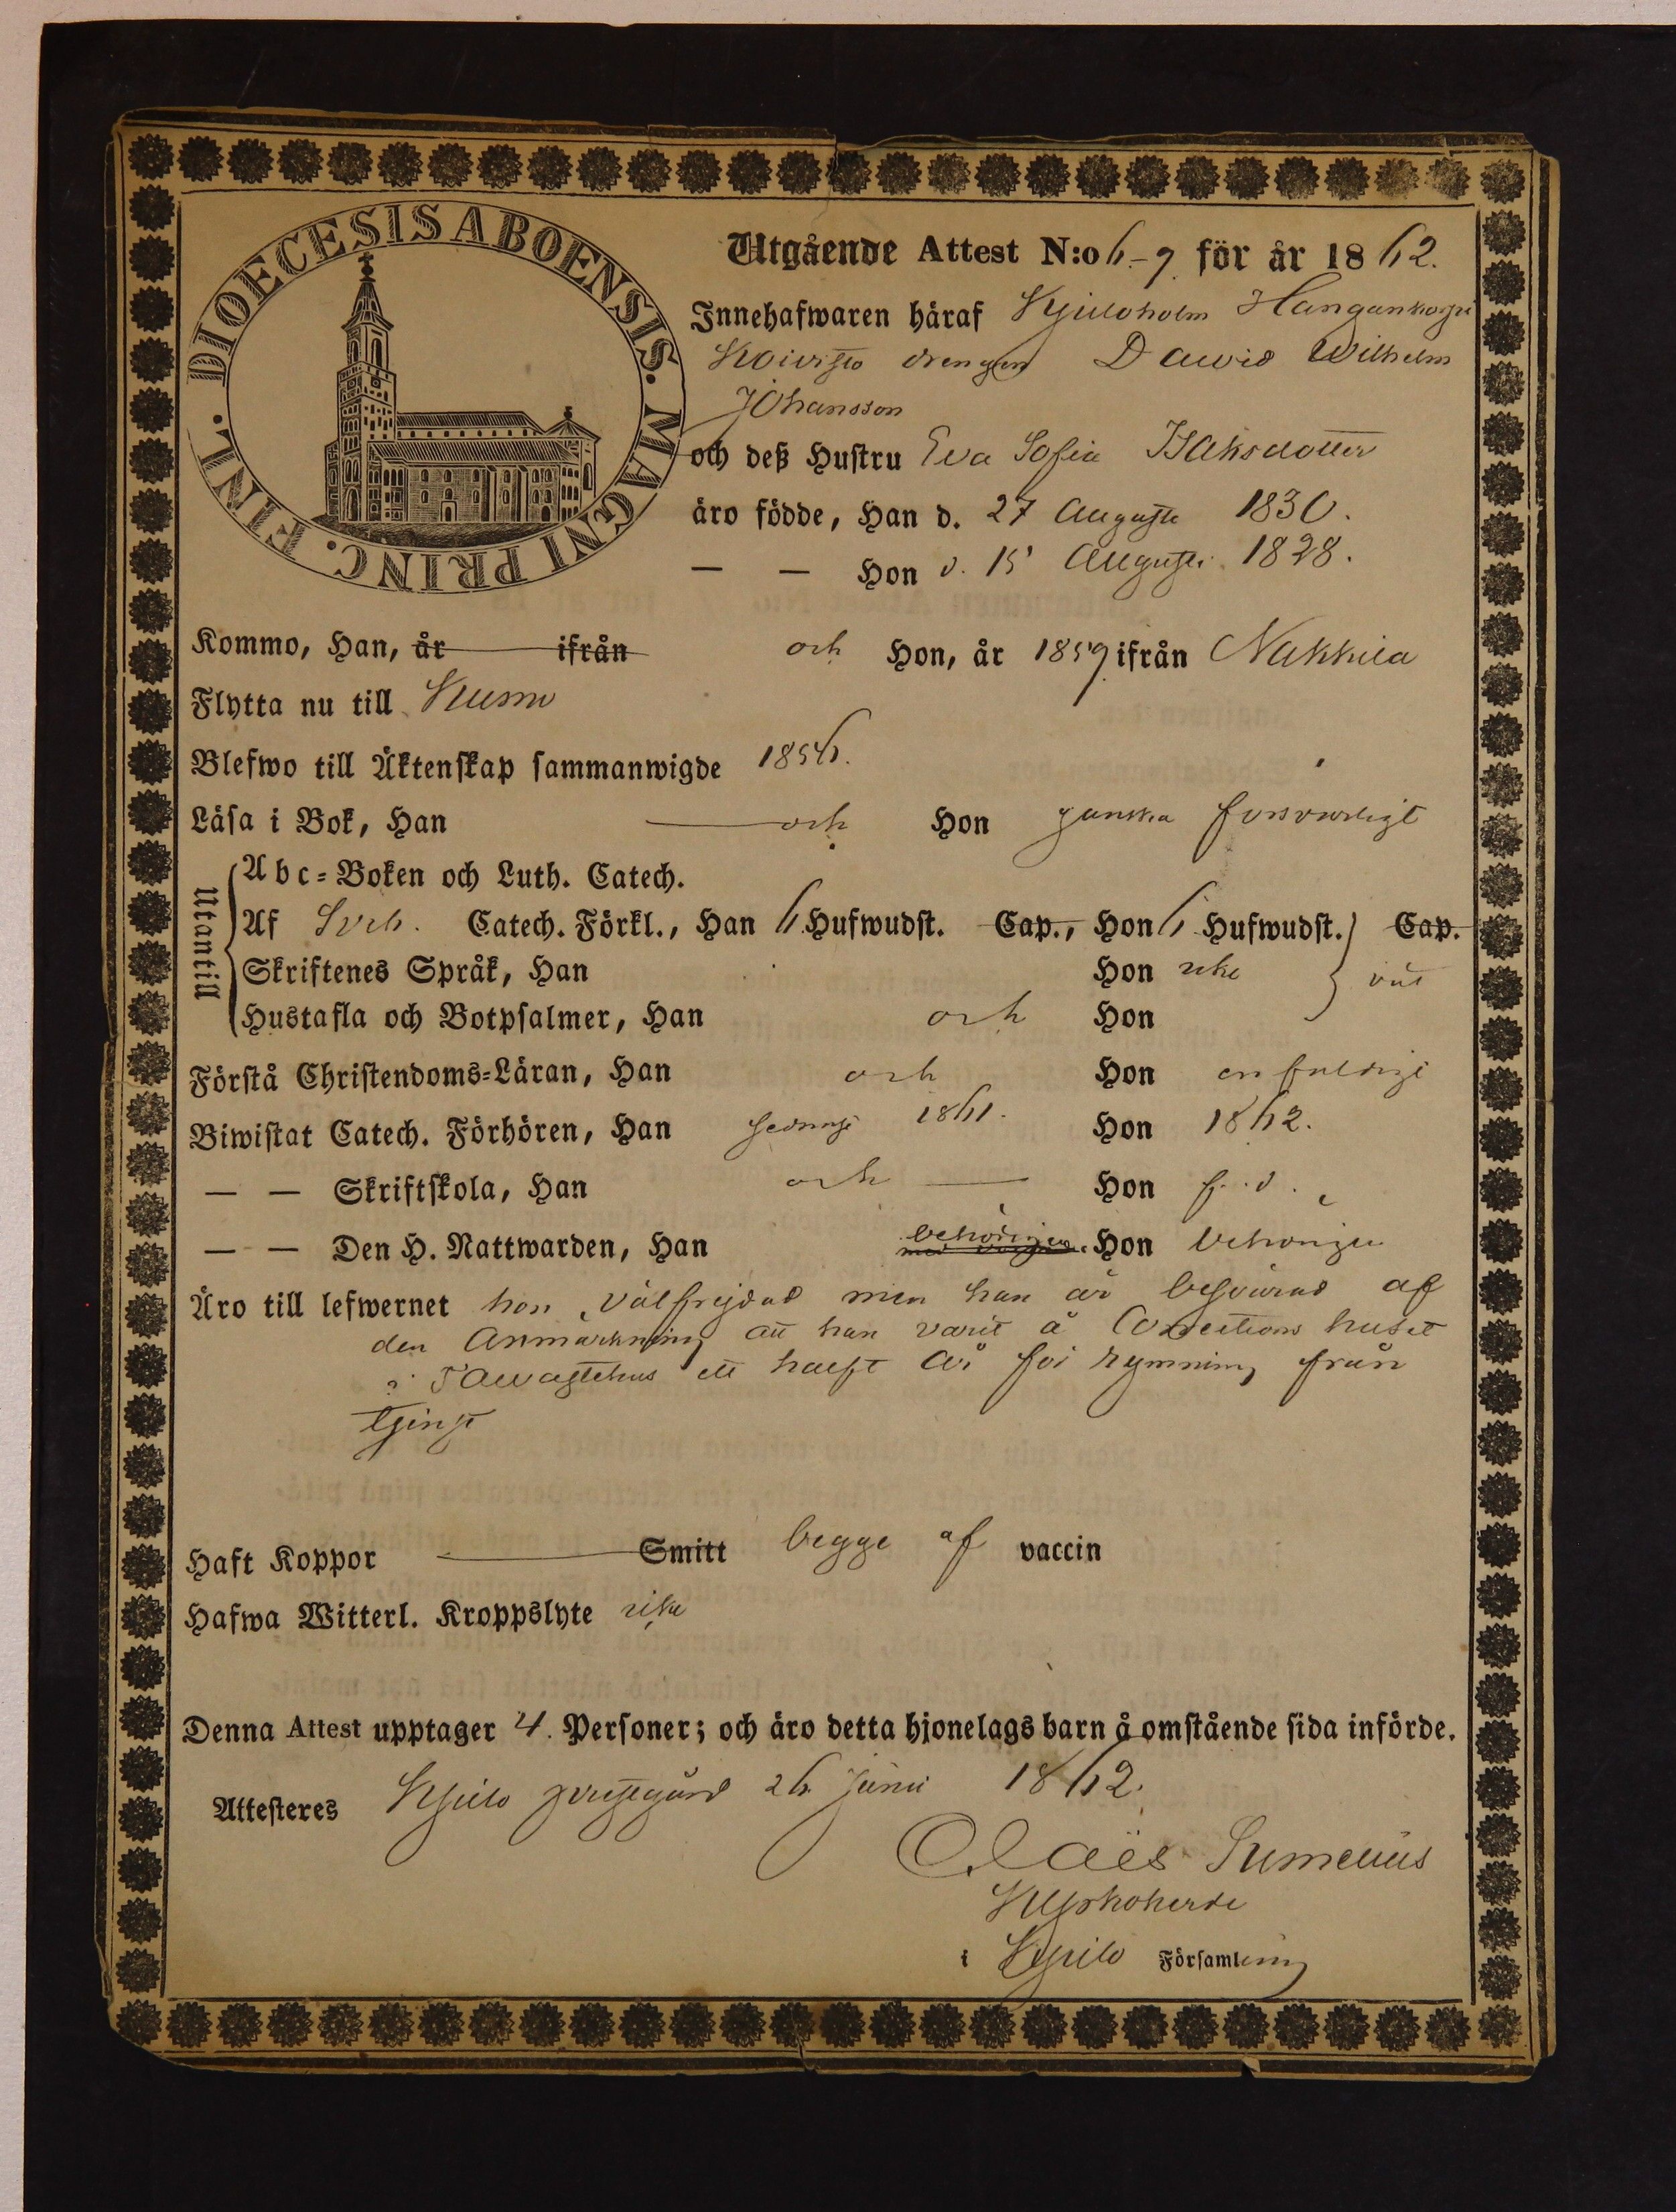 DIOECESIS ABOENSIS. MAGNI PRINC. FINL.
Utgående Attest N:o 6-9 för år 1862.
Innehafwaren häraf Kjuloholm
drengen Dawid Wilhelm
Johansson
och deß Hustru Eva Sofia Isaksdotter
äro födde, Han d. 27 Augusti 1830.
— — Hon d. 15 Augusti 1828.
Kommo, Han, år ifrån och Hon, år 1859 ifrån Nakkila
Flytta nu till Kumo
Blefwo till Äktenskap sammanwigde 1856.
Läsa i Bok, Han och Hon ganska försvarligt
Utantill
Abc-Boken och Luth. Catech.
Af Sveb. Catech. Förkl., Han 6 Hufwudst. Cap., Hon 6 Hufwudst. Cap.
Skriftenes Språk, Han Hon icke
Hustafla och Botpsalmer, Han och Hon
Förstå Christendoms-Läran, Han och Hon enfaldigt
Biwistat Catech. Förhören, Han sednast 1861. Hon 1862.
— — Skriftskola, Han och Hon f. d.
— — Den H. Nattwarden, Han behörigen Hon behörigen
Äro till lefwernet hon välfrejdad men han är besvärad af
den Anmärkning att han varit å Corrections huset
i Tawastehus ett halft år för rymning från
tjenst
Haft Koppor Smitt begge af vaccin
Hafwa Witterl. Kroppslyte icke
Denna Attest upptager 4. Personer; och äro detta hjonelags barn å omstående sida införde.
Attesteres Kjulo prestgård 26 Junii 1862.
Claës Sumelius
Kyrkoherde
i Kjulo Församling